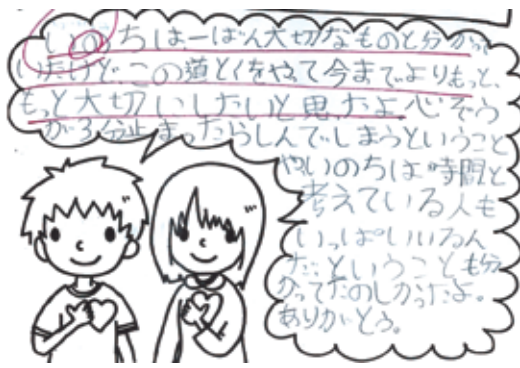 いのちは、一ばん大切なものと分かって
いたけど、この道とくをやって今までよりもっと、
もっと大切にしたいと思ったよ。心ぞう
が3分止まったらしんでしまうということ
や、いのちは時間と
考えている人も
いっぱいいるん
だということも分
かってたのしかったよ。
ありがとう。